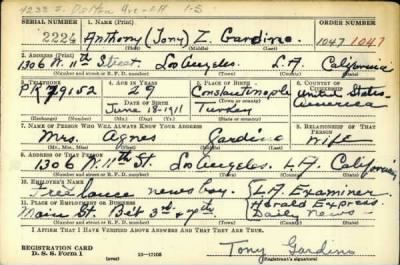 4233 S.
SERIAL NUMBER 1. NAME (Print) ORDER NUMBER (Print)
2224 Anthony (Tony) Z. Gardino 1047 1047
(First) (Middle) (Last)
2. ADDRESS (Print)
1306 W. 11th Street. Los Angeles. L.A. California
(Number and street or R. F. D. number) (Town) (County) (State)
3. TELEPHONE 4. AGE IN YEARS 5. PLACE OF BIRTH 6. COUNTRY OF CITIZENSHIP
PR 79152 29 Constantinople United States
DATE OF BIRTH (Town or county) America
June 18-1911 Turkey
(Exchange) (Number) (Mo.) (Day) (Yr.) (State or country)
7. NAME OF PERSON WHO WILL ALWAYS KNOW YOUR ADDRESS RELATIONSHIP OF THAT PERSON
Mrs. Agnes Gardino wife
(Mr., Mrs., Miss) (First) (Middle) (Last)
9. ADDRESS OF THAT PERSON
1306 W. 11th St. Los Angeles. L.A. California
(Number and street or R. F. D. number) (Town) (County) (State)
10. EMPLOYER'S NAME
Free lance news boy. L.A. Examiner
11. PLACE OF EMPLOYMENT OR BUSINESS Herald Express.
Main St. Bet 3rd & 4th Daily News
(Number and street or R. F. D. number) (Town) (County) (State)
I AFFIRM THAT I HAVE VERIFIED ABOVE ANSWERS AND THAT THEY ARE TRUE.
REGISTRATION CARD
D. S. S. Form 1 Tony Gardino
(Registrant's signature)